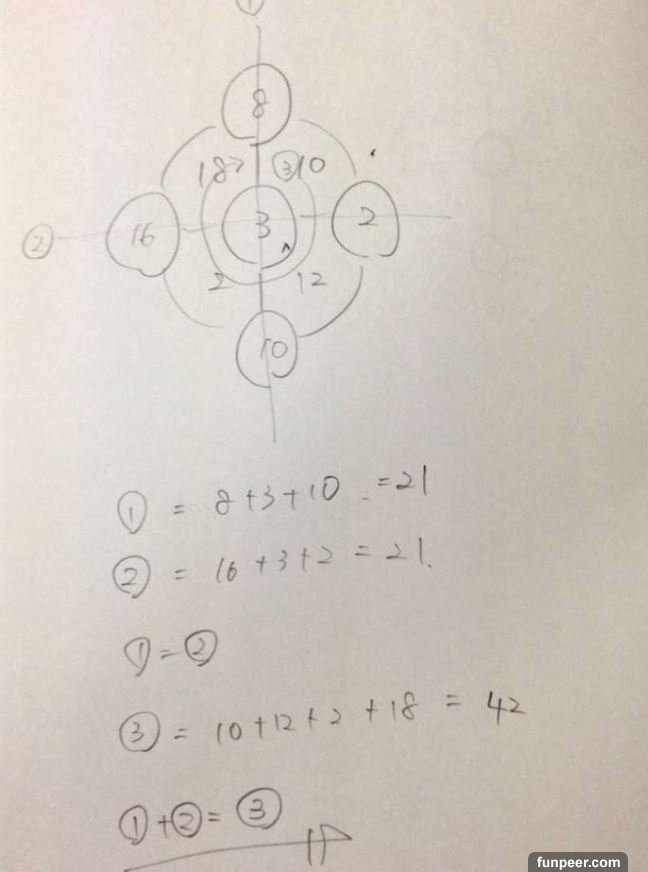 ①
8
18 ③ 10
② 16 3 2
2 12
10
① = 8+3+10 =21
② = 16+3+2 = 21.
①=②
③ = 10+12+2+18 = 42
①+②= ③
funpeer.com